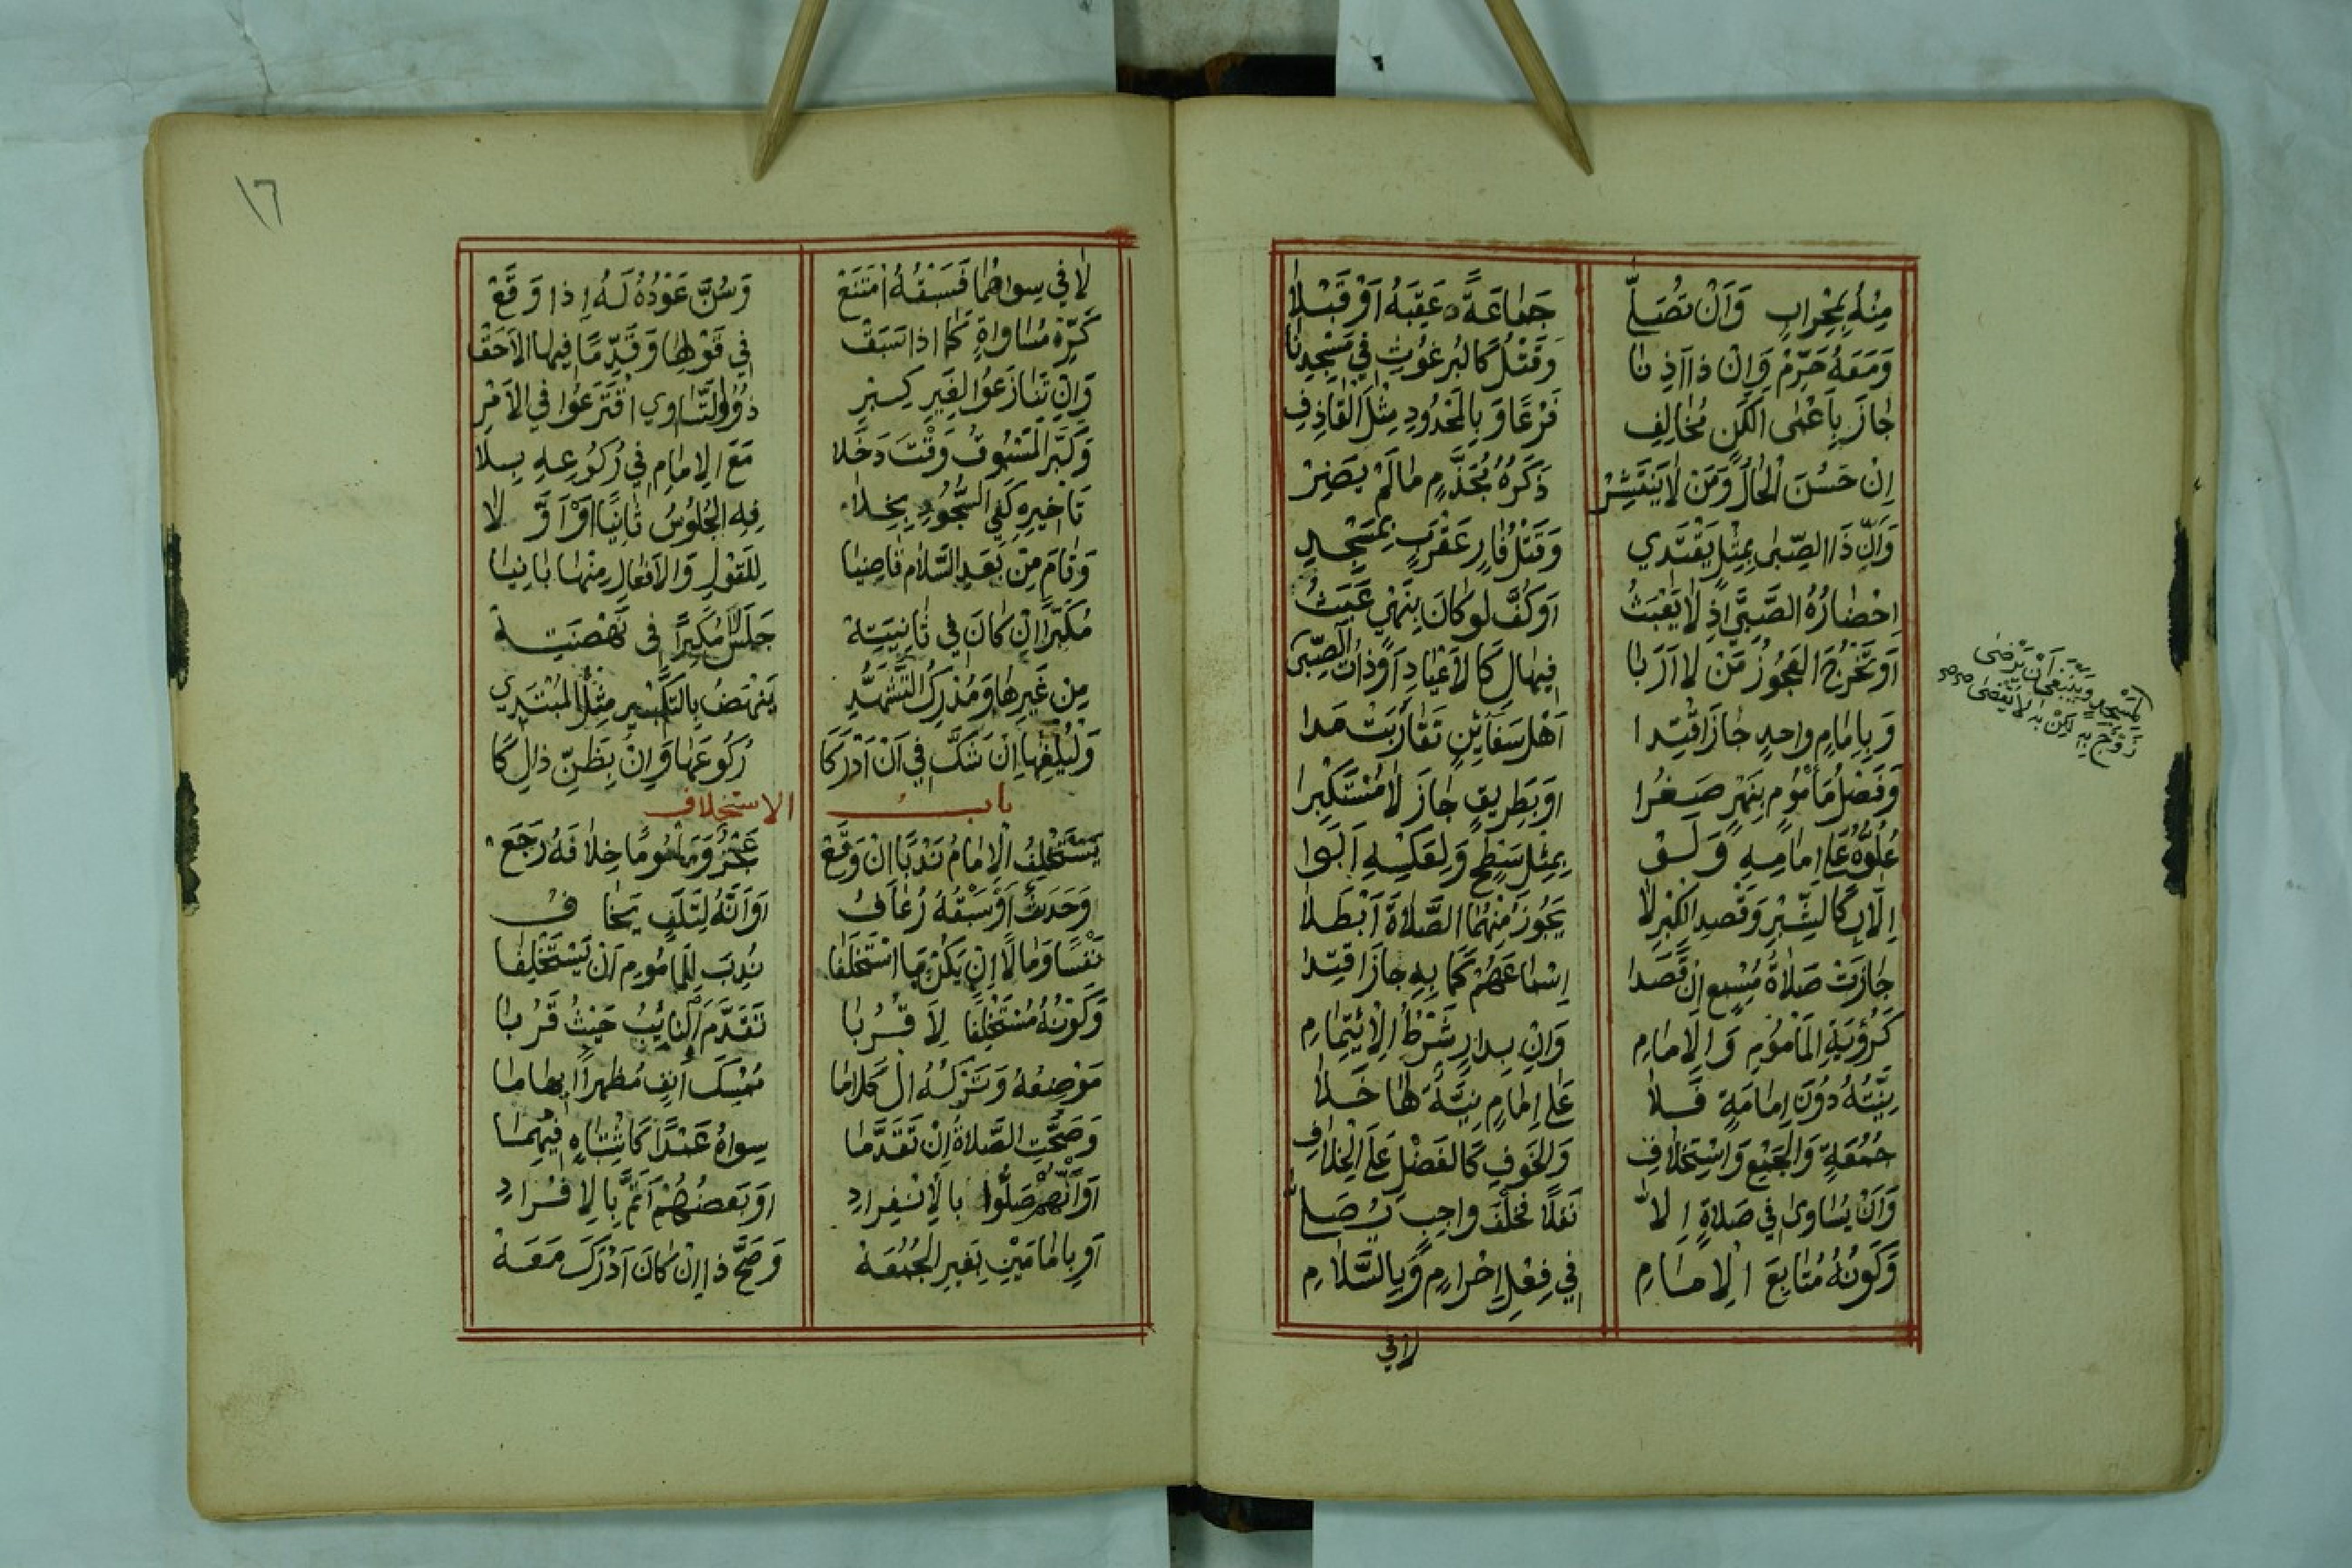 مِنْهُ بِمِحْرابٍ وَاَنْ تُصَلَّى جَمَاعَةً عَقِبَهُ اَوْ قَبْلَا
وَمَعَهُ حَرِّمْ وَاِنْ ذَا اَذِنَا وَقَتْلُ كَالبُرغُوثِ فِي مَسْجِدِنَا
جَازَ بِاَعْمَى الكَنٍ مُخَالِفِ فَرْعًا وَبِالمَحْدُودِ مِثْلَ القَاذِفِ
اِنْ حَسُنَ الْحَالُ وَمَنْ لَا يَنْتَشِرْ ذَكَرُهُ مُجَذَّمٍ مَالَمْ يَضِرْ
وَاَنَّ ذَا الصِّبَى بِمِثْلٍ يَقْتَدِي وَقَتْلُ فَارِ عَقْرَبٍ بِمَسْجِدِ
اِحْضَارُهُ الصَّبِيَّ اِذْ لَا يَعْبَثُ اَوْ كُفَّ لَوْ كَانَ بِنَهْيٍ عَبَثُ
اَوْ تَخْرُجَ العَجُوزُ مَنْ لَا اَرَبَا فِيهَا لِكَالاَعْيَادِ اَوْ ذَاتُ الصِّبَى
وَبِاِمَامٍ وَاحِدٍ جَازَ اقْتِدَا اَهْلِ سَفَايِنٍ تَقَارَبَتْ مَدَا
وَفَصْلُ مَأْمُومٍ بِنَهْرٍ صَغُرَا اَوْ بِطَرِيقٍ جَازَ لَا مُسْتَكْبِرَا
عُلُوُّهُ عَلَى اِمَامِهِ وَلَوْ بِمِثْلِ سَطْحٍ وَلِعَكْسِهِ اَبَوْا
اِلَّا بِكَالشِّبْرِ وَقَصْدِ الكِبْرِ لَا يَجُوزُ مِنْهُمَا الصَّلَاةَ اَبْطَلَا
جَازَتْ صَلَاةُ مُسْمِعٍ اِنْ قَصَدَا اِسْمَاعَهُمْ كَمَا بِهِ جَازَ اقْتِدَا
كَرُؤْيَةِ المَأْمُومِ وَالِامَامِ وَاِنْ بِدَارٍ شَرْطُ الِائْتِمَامِ
نِيَّتُهُ دُوْنَ اِمَامَةٍ فَلَا عَلَى اِمَامٍ نِيَّةٌ لَهَا خَلَا
جُمُعَةٍ وَالجَمْعِ وَاسْتِخْلَافِ وَالخَوفِ كَالفَضْلِ عَلَى الخِلَافِ
وَاَنْ يُسَاوَى فِي صَلَاةٍ اِلَّا نَفْلًا فَخَلْفَ وَاجِبٍ يُصَلَّى
وَكَوْنُهُ مُتَابِعَ الِامَامِ فِي فِعْلِ اِحْرَامٍ وَبِالسَّلَامِ
لا في
بمسجد وينبغي ان يرضى
زوج به لكن به لا يقضى
١٦
لَا فِي سِوَاهُمَا فَسَبْقُهُ امْتَنَعْ وَسُنَّ عَوْدُهُ لَهُ اِذَا وَقَعْ
كَرِّهْ مُسَاوَاةً كَمَا اِذَا سَبَقْ فِي قَوْلِهَا وَقَدِّمًا فِيهَا الاَحَقْ
وَاِنْ تَنَازَعُوا لِغَيرِ كِبْرِ ذَوُو التَّسَاوِي اقْتَرَعُوا فِي الاَمْرِ
وَكَبَّرَ المَسْبُوقُ وَقْتَ دَخَلَا مَعَ الِامَامِ فِي رُكُوعِهِ بِلَا
تَاخِيرِهِ كَفِي السُّجُودِ بِخِلَا فِهِ الجُلُوسُ ثَانِيًا اَوْ اَوَّلَا
وَقَامَ مِنْ بَعْدِ السَّلَامِ قَاضِيَا لِلقَوْلِ وَالاَفْعَالِ مِنْهَا بَانِيَا
مُكَبِّرًا اِنْ كَانَ فِي ثَانِيَتِهْ جَلَسَ لَا مُكَبِّرًا فِي نَهْضَتِهْ
مِن غَيْرِهَا وَمُدْرِكُ التَّشَهُّدِ يَنْهَضُ بِالتَّكْبِيرِ مِثْلُ المُبْتَدِي
وَلْيُلْغِهَا اِنْ شَكَّ فِي اَنْ اَدْرَكَا رُكُوعَهَا وَاِنْ يَظُنَّ ذَالِكَا
باب الاستخلاف
يَسْتَخْلِفُ الِامَامُ نَدْبًا اِنْ وَقَعْ عَجْزٌ وَمَأْمُومًا خِلَافَهُ رَجَعْ
وَحَدَثٌ اَوْ سَبْقُهُ رُعَافُ اَوْ اَنَّهُ لِتَلَفٍ يَخَافُ
نَفْسًا وَمَالًا اِنْ يَكُنْ مَا اسْتَخْلَفَا نُدِبَ لِلمَامُومِ اَنْ يَسْتَخْلِفَا
وَكَوْنُهُ مُسْتَخْلِفًا لِاَقْرُبَا تَقَدُّمَ النَايِبُ حَيْثُ قَرُبَا
مَوْضِعُهُ وَتَرْكُهُ الكَلَامَا مُمْسِكَ اَنِفٍ مُظهِرًا اِيهَامَا
وَصَحَّتِ الصَّلَاةُ اِنْ تَقَدَّمَا سِوَاهُ عَمْدًا كَاشْتِبَاهٍ فِيهِمَا
اَوْ اَنَّهُمْ صَلُّوا بِالِانْفِرَادِ اَوْ بَعْضُهُمْ اَتَمَّ بِالِافْرَادِ
اَوْ بِامَامَيْنِ بِغَيرِ الجُمُعَهْ وَصَحَّ ذَا اِنْ كَانَ اَدْرَكَ مَعَهْ